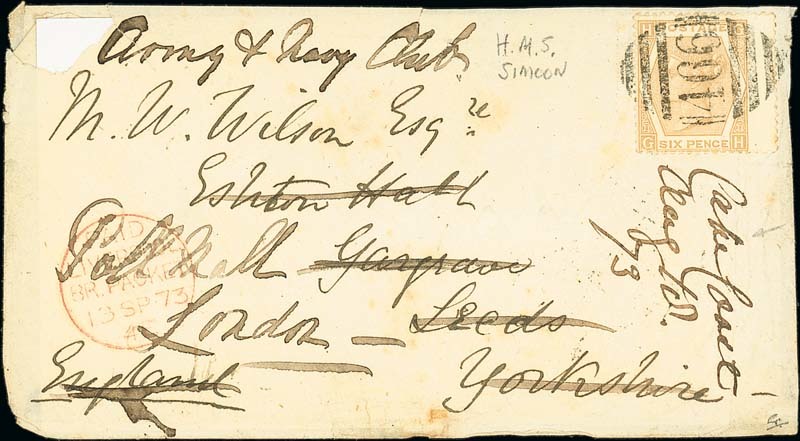 Army & Navy Club
H.M.S.
SIMOON
M. W. Wilson Esqre
Eshton Hall
Pall Mall Gargrave
London - Leeds
England Yorkshire -
POSTAGE
466
G SIX PENCE H
PAID
LIVERPOOL
BR. PACKET
13 SP 73
Cape Coast
Aug
/73